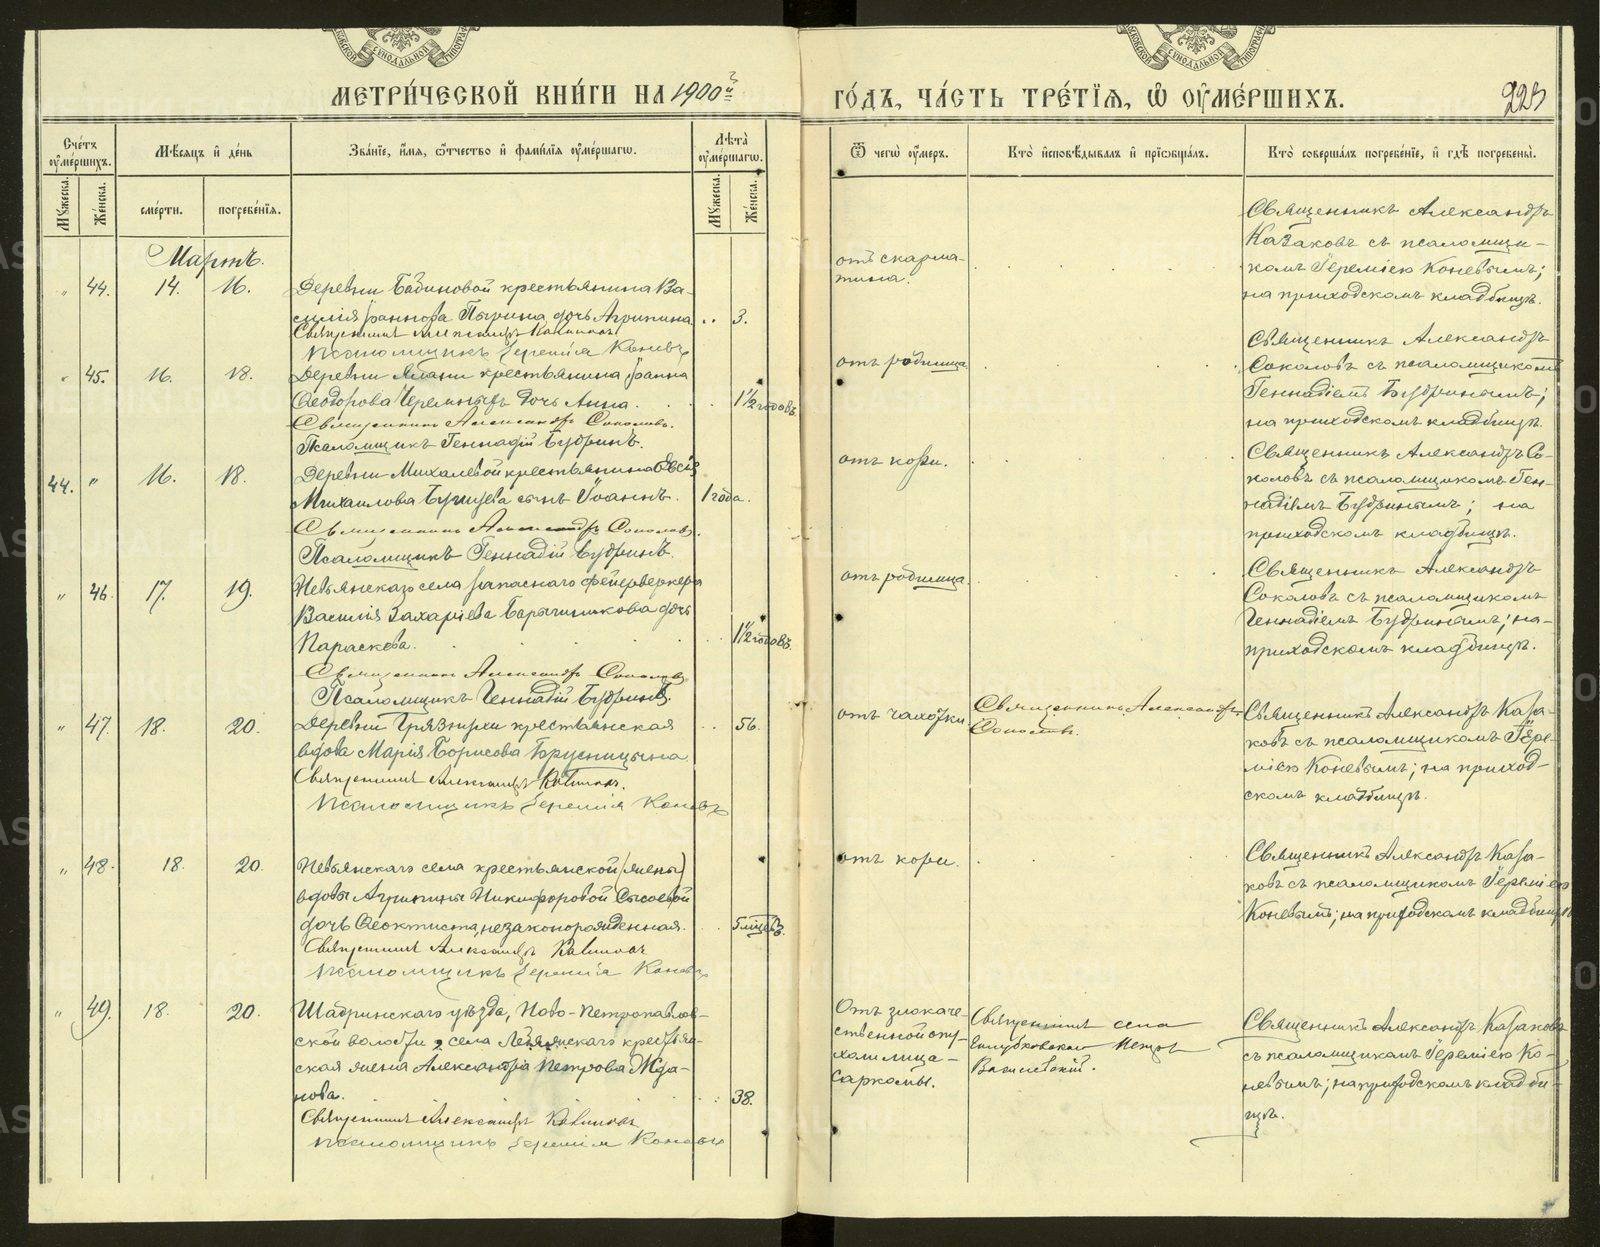 МЕТРИ́ЧЕСКОЙ КНИ́ГИ НА 1900й
ГО́ДЪ, ЧА́СТЬ ТРЕ́ТІЯ, Ѽ ОУМЕ́РШИХЪ.
223
Сче́тъ оумершихъ.
Мѣ́сяцъ и де́нь
Зва́нїе, и́мя, ѻ҆́тчество и фами́лїя оумершаго.
Лѣта̀ оумершаго.
Ѿ чегѡ̀ оумеръ.
Кто̀ исповѣ́дывалъ и прїѡбща́лъ.
Кто̀ соверша́лъ погребе́нїе, и гдѣ̀ погребены̀.
Мужеска.
Же́нска.
сме́рти.
погребе́нїя.
Мужеска.
Же́нска.
Мартъ.
" 44. 14. 16.
Деревни Бабиновой крестьянина Ва-
силія Іоаннова Пырина дочь Агрипина. 3.
Священникъ Александръ Казаковъ
Псаломщикъ Іеремія Коневъ
отъ скарла-
тина.
Священникъ Александръ
Казаковъ съ псаломщи-
комъ Іереміею Коневымъ;
на приходскомъ кладбищѣ.
" 45. 16. 18.
Деревни Ялани крестьянина Іоанна
Ѳеодорова Черемныхъ дочь Анна. 1½ годовъ.
Священникъ Александръ Соколовъ.
Псаломщикъ Геннадій Бубринъ.
отъ родимца.
Священникъ Александръ
Соколовъ съ псаломщикомъ
Геннадіемъ Бубринымъ;
на приходскомъ кладбищѣ.
44. " 16. 18.
Деревни Михалевой крестьянина
Михаилова сынъ Іоаннъ. 1 года.
Священникъ Александръ Соколовъ.
Псаломщикъ Геннадій Бубринъ.
отъ кори.
Священникъ Александръ Со-
коловъ съ псаломщикомъ Ген-
надіемъ Бубринымъ; на
приходскомъ кладбищѣ.
" 46. 17. 19.
Невьянскаго села запаснаго фейерверкера
Василія Захаріева Барышникова дочь
Параскева. 1½ годовъ.
Священникъ Александръ Соколовъ
Псаломщикъ Геннадій Бубринъ.
отъ родимца.
Священникъ Александръ
Соколовъ съ псаломщикомъ
Геннадіемъ Бубринымъ; на-
приходскомъ кладбищѣ.
" 47. 18. 20.
Деревни Грязнухи крестьянская 56.
вдова Марія Борисова Брусницына
Священникъ Александръ Казаковъ.
Псаломщикъ Іеремія Коневъ
отъ чахотки
Священникъ Александръ
Соколовъ.
Священникъ Александръ Каза-
ковъ съ псаломщикомъ Іере-
міею Коневымъ; на приход-
скомъ кладбищѣ.
" 48. 18. 20.
Невьянскаго села крестьянской (жены)
вдовы Агрипины Никифоровой Сысоевой
дочь Ѳеоктиста, незаконорожденная. 5 мѣсяцевъ.
Священникъ Александръ Казаковъ
Псаломщикъ Іеремія Коневъ
отъ кори.
Священникъ Александръ Каза-
ковъ съ псаломщикомъ Іереміею
Коневымъ; на приходскомъ кладбищѣ
" 49. 18. 20.
Шадринскаго уѣзда, Ново-Петропавлов-
ской волости, села крестьян-
ская жена Александра Петрова Жда-
нова. 38.
Священникъ Александръ Казаковъ
Псаломщикъ Іеремія Коневъ
Отъ злокаче-
ственной опу-
холи лица-
саркомы.
Священникъ села
Василевскій.
Священникъ Александръ Казаковъ
съ псаломщикомъ Іереміею Ко-
невымъ; на приходскомъ кладби-
щѣ.